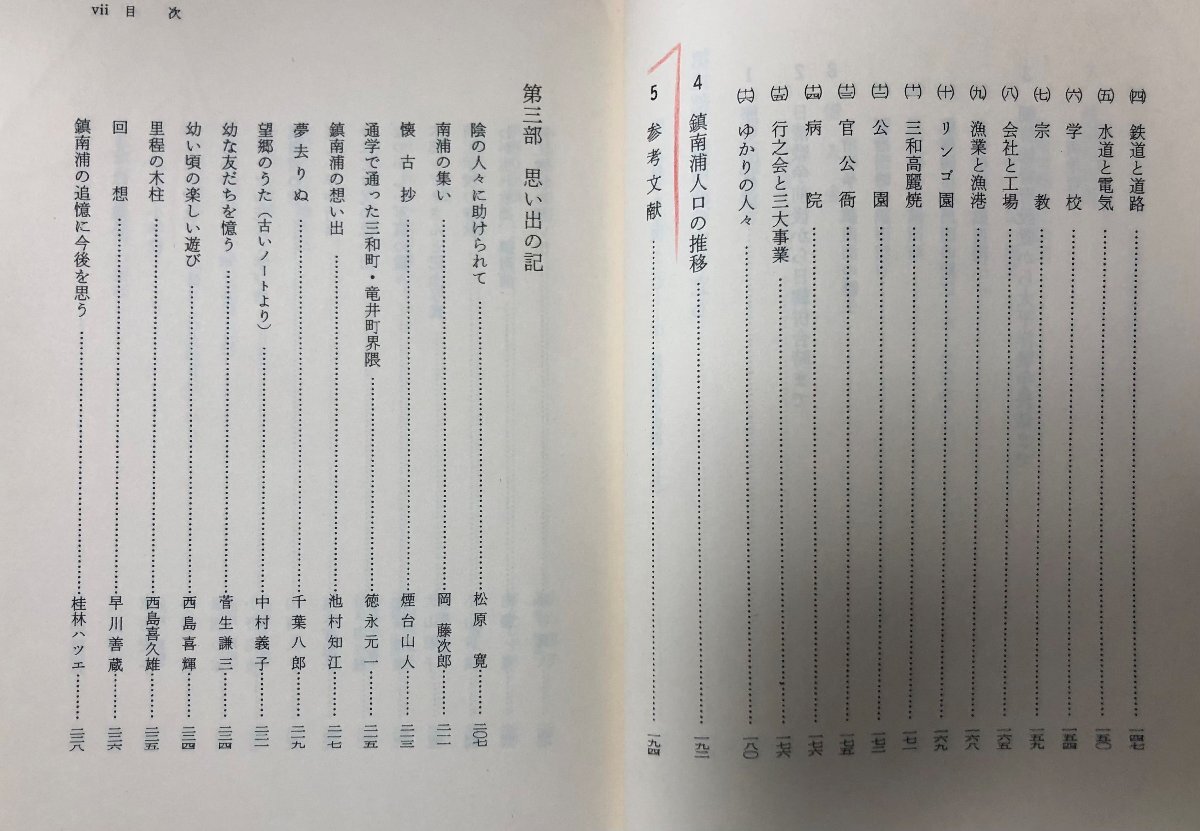 ㈣ 鉄道と道路……一四七
㈤ 水道と電気……一五〇
㈥ 学校……一五四
㈦ 宗教……一五九
㈧ 会社と工場……一六五
㈨ 漁業と漁港……一六八
㈩ リンゴ園……一六九
(十一) 三和高麗焼……一七一
(十二) 公園……一七二
(十三) 官公衙……一七五
(十四) 病院……一七六
(十五) 行之会と三大事業……一七六
(十六) ゆかりの人々……一八〇
4 鎮南浦人口の推移……一九二
5 参考文献……一九四
vii 目 次
第三部 思い出の記
陰の人々に助けられて……松原 寛……二〇七
南浦の集い……岡 藤次郎……二一一
懐古抄……煙台山人……二一三
通学で通った三和町・竜井町界隈……徳永元一……二一五
鎮南浦の想い出……池村知江……二一七
夢去りぬ……千葉八郎……二一九
望郷のうた(古いノートより)……中村義子……二二一
幼な友だちを憶う……菅生謙三……二二四
幼い頃の楽しい遊び……西島喜輝……二三四
里程の木柱……西島喜久雄……二三五
回想……早川善蔵……二三六
鎮南浦の追憶に今後を思う……桂林ハツエ……二三八